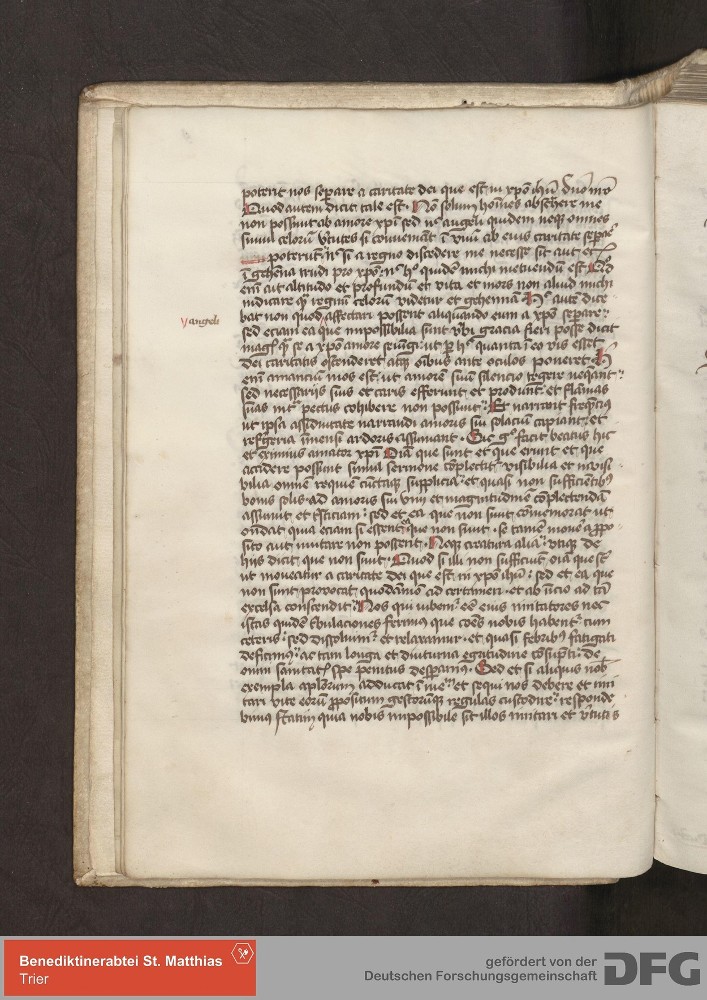 poterit nos separe a caritate dei que est in xpō ihū dn̄o nr̄o
Quod autem dicit tale est. Nō solum homīes abschere me
non possunt ab amore xpī sed nec angeli quidem neqz omnes
simul celorū vtutes si conueniant ī vnū ab eius caritate separe
poterunt si a regno discedere me necesse sit aut et
ī gehēna trudi pro xpō quidē michi metuendum est
enī aut altitudo et profundū et vita et mors non aliud michi
indicare qz regnū celorum videtur et gehenna autē dice
bat non quod affectari posserit aliquando eum a xpō separe
yangeli
sed eciam ea que impossibilia sunt vbi gracia fieri posse dicit
se a xpō amore seiungi ut quanta in eo vis esset
dei caritatis ostenderet atqz oībus ante oculos poneret
enī amanciū mos est ut amorē suū silencio tegere neqant
sed necessarijs suis et caris efferunt et produnt et flāmas
suas intra pectus cohibere non possunt Et narrant freqncius
ut ipsa assiduitate narrandi amoris sui solacium capiant et
refrigeria īmensi ardoris assumant. Sic facit beatus hic
et eximius amator xpī Oīa que sunt et que erunt et que
accidere possunt simul sermone cōplectitur visibilia et invisi
bilia omnē requiē cunctaqz supplicia et quasi non sufficientibus
bonis solis ad amoris sui vim et magnitudinē cōplectendā
assumit et tristiciam sed et ea que non sunt cōmemorat ut
ondat quia eciam si essent que non sunt. se tamē a ppo
sito aut mutare non possent. Neqz creatura alia vtiqz de
hijs dicit que non sunt. Quod si illi non sufficiunt oīa que
ut moueatur a caritate dei que est in xpō ihū sed et ea que
non sunt prouocat quodāmō ad certamen. et ab inicio ad tā
excelsa conscendit Nos qui iubemur eius imitatores nec
istas quidē tribulaciones ferimus que cōes nobis habentur cum
ceteris sed dissoluimur et relaxamur et quasi febribus fatigati
deficimus ac tam longa et diuturna egritudine cōsumpti de
omni sanitatis spe penitus desperamus. Sed et si aliquis nobis
exempla aplōrum adducat et sequi nos debere et imi
tari vite eorū ppositum gestorūqz regulas custodire responde
bimus statim quia nobis impossibile sit illos imitari et vtutis
Benediktinerabtei St. Matthias
Trier
gefördert von der
Deutschen Forschungsgemeinschaft
DFG